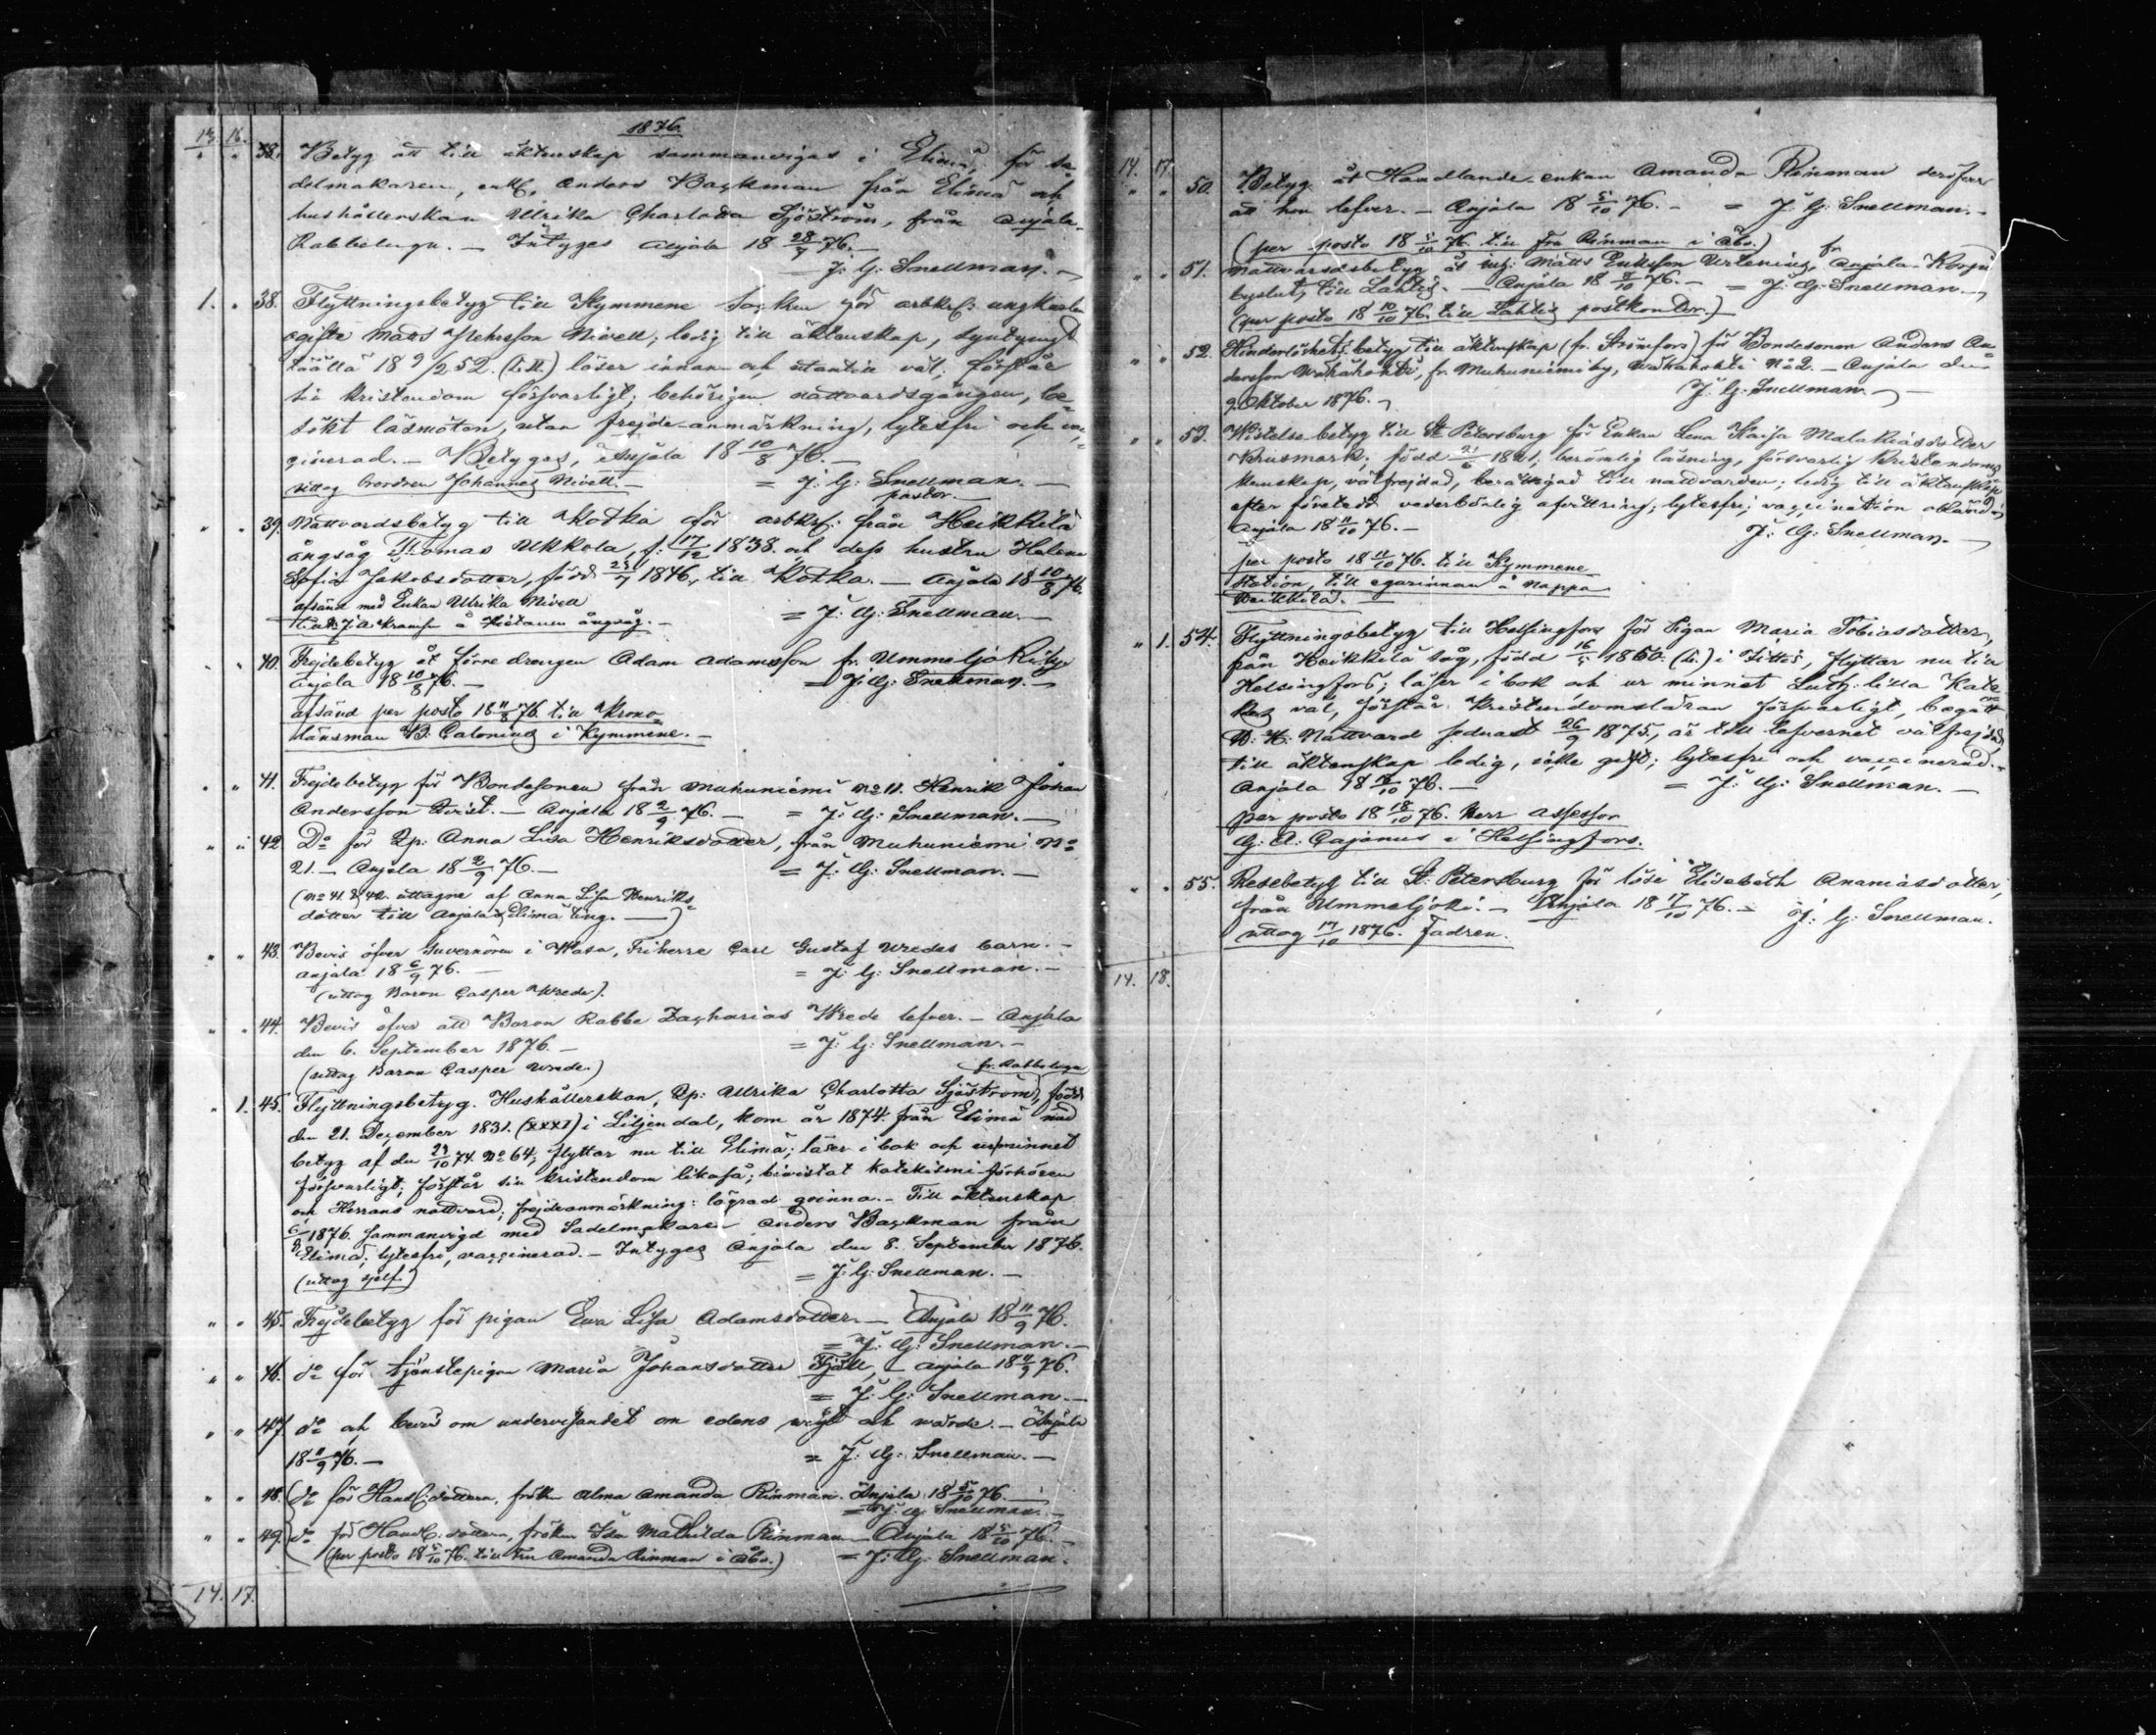 1876.
13 16.
" " 38. Betyg att till äktenskap sammanvigas i Elimä, för sa-
delmakaren, enkl. Anders Backman från Elimä och
hushållerskan Ulrika Charlotta Sjöström, från Anjala
Rabbelugn. — Intyges Anjala 18 28/7 76. —
J. G. Snellman. —
1. " 38. Flyttningsbetyg till Kymmene socken för arbkrl: ungkarlen
ogifte Matts Nivell, ledig till äktenskap, syntynyt
täällä 18 9/2 52. (LII.) läser innan och utantill väl; förstår
sin kristendom försvarligt; behörigen nattvardsgången, be-
sökt läsmöten, utan frejde-anmärkning, lytesfri och vac-
cinerad. — Betygas, Anjala 18 10/8 76. —
uttog brodren Johannes Nivell. — = J. G. Snellman. —
pastor. —
" " 39. Nattvardsbetyg till Kotka för arbkrl: från Heikkilä
ångsåg Thomas Ukkola, f. 17/12 1838. och dess hustru Helena
Sofia Jakobsdotter, född 25/7 1846, till Kotka. — Anjala 18 10/8 76.
afsänd med Enkan Ulrika Nivell
å Hietanen ångsåg. — = J. G. Snellman. —
" " 40. Frejdebetyg åt förre drengen Adam Adamsson fr. Ummeljoki by.
Anjala 18 10/8 76. — = J. G. Snellman. —
afsänd per posto 18 11/8 76. till Krono-
länsman B. Calonius i Kymmene. —
" " 41. Frejdebetyg för Bondesonen från Muhuniemi No 11. Henrik Johan
Andersson — Anjala 18 2/9 76. — = J. G. Snellman. —
" " 42. Do för Qp: Anna Lisa Henriksdotter, från Muhuniemi No
21. — Anjala 18 2/9 76. — = J. G. Snellman. —
(No 41. & 42. uttagne af Anna Lisa Henriks-
dotter till Anjala & Elimä ting. —)
" " 43. Bevis öfver Guvernören i Wasa, Friherre Carl Gustaf Wredes barn. —
Anjala 18 6/9 76. — = J. G. Snellman. —
(uttog Baron Casper Wrede).
" " 44. Bevis öfver att Baron Rabbe Zacharias Wrede lefver. — Anjala
den 6. September 1876. — = J. G. Snellman. —
(uttog Baron Casper Wrede.)
fr. Rabbelugn
" 1. 45. Flyttningsbetyg. Hushållerskan, Qp: Ulrika Charlotta Sjöström, född
den 21. December 1831. (XXXI) i Liljendal, kom år 1874. från Elimä med
betyg af den 29/10 74 No 64; flyttar nu till Elimä; läser i bok och ur minnet
försvarligt; förstår sin kristendom likaså; bivistat katekismi-förhören
och Herrans nattvard; frejdeanmärkning: lägrad qvinna. — Till äktenskap
6/8 1876. sammanvigd med Sadelmakaren Anders Backman från
Elimä; lytesfri, vaccinerad. — Intyges Anjala den 8. September 1876.
(uttog sjelf.) = J. G. Snellman. —
" " 45. Frejdebetyg för pigan Eva Lisa Adamsdotter. — Anjala 18 11/9 76.
= J. G. Snellman. —
" " 46. do för tjenstepigan Maria Johansdotter Fjäll, — Anjala 18 11/9 76.
= J. G. Snellman. —
" " 47. do och bevis om undervisandet om edens vigt och wärde. — Anjala
18 11/9 76. — = J. G. Snellman. —
" " 48. do för Handl: dottern, fröken Alma Amanda Rinman. Anjala 18 5/10 76. —
= J. G. Snellman. —
" " 49. do för Handl: dottern, fröken Ida Mathilda Rinman — Anjala 18 5/10 76. —
(per posto 18 5/10 76. till Fru Amanda Rinman i Åbo.) = J. G. Snellman. —
14. 17.
14. 17.
" " 50. Betyg åt Handlande-enkan Amanda Rinman deröfver
att hon lefver. — Anjala 18 5/10 76. — = J. G. Snellman. —
(per posto 18 5/10 76. till Fru Rinman i Åbo.)
" " 51. Nattvardsbetyg åt Matts Eriksson Urtenius, fr. Anjala-Korpi
till Lahtis. — Anjala 18 76. — = J. G. Snellman. —
(per posto 18 10/10 76. till Lahtis postkontor.)
" " 52. Hinderlöshets betyg till äktenskap (fr. Strömfors) för Bondesonen Anders An-
dersson fr. Muhuniemi by, No 2. — Anjala den
9. Oktober 1876. — J. G. Snellman. —
" " 53. Wistelse betyg till St Petersburg för Enkan Lena Kaisa Malakiasdotter
Brusmark; född 1821; berömlig läsning, försvarlig kristendoms
kunskap, välfrejdad, berättigad till nattvarden; ledig till äktenskap
efter företedd vederbörlig afvittring; lytesfri; vaccination okänd.
Anjala 18 11/10 76. — J. G. Snellman. —
per posto 18 11/10 76. till Kymmene
station, till egarinnan å Nappa
Heikkilä. —
" 1. 54. Flyttningsbetyg till Helsingfors för Pigan Maria Tobiasdotter,
från Heikkilä såg, född 16/5 1860. i Ittis, flyttar nu till
Helsingfors; läser i bok och ur minnet Luth: lilla Kate-
kes väl, förstår kristendomsläran försvarligt, begått
H. H. Nattvard sednast 26/9 1875, är till lefvernet välfrejdad,
till äktenskap ledig, icke gift; lytesfri och vaccinerad. —
Anjala 18 76. — = J. G. Snellman. —
per posto 18 18/10 76. Herr assessor
G. A. Cajanus i Helsingfors.
" " 55. Resebetyg till St. Petersburg för lösa Elisabeth Ananiasdotter,
från Ummeljoki. — Anjala 18 17/10 76. — J. G. Snellman.
uttog 17/10 1876. fadren.
14. 18.